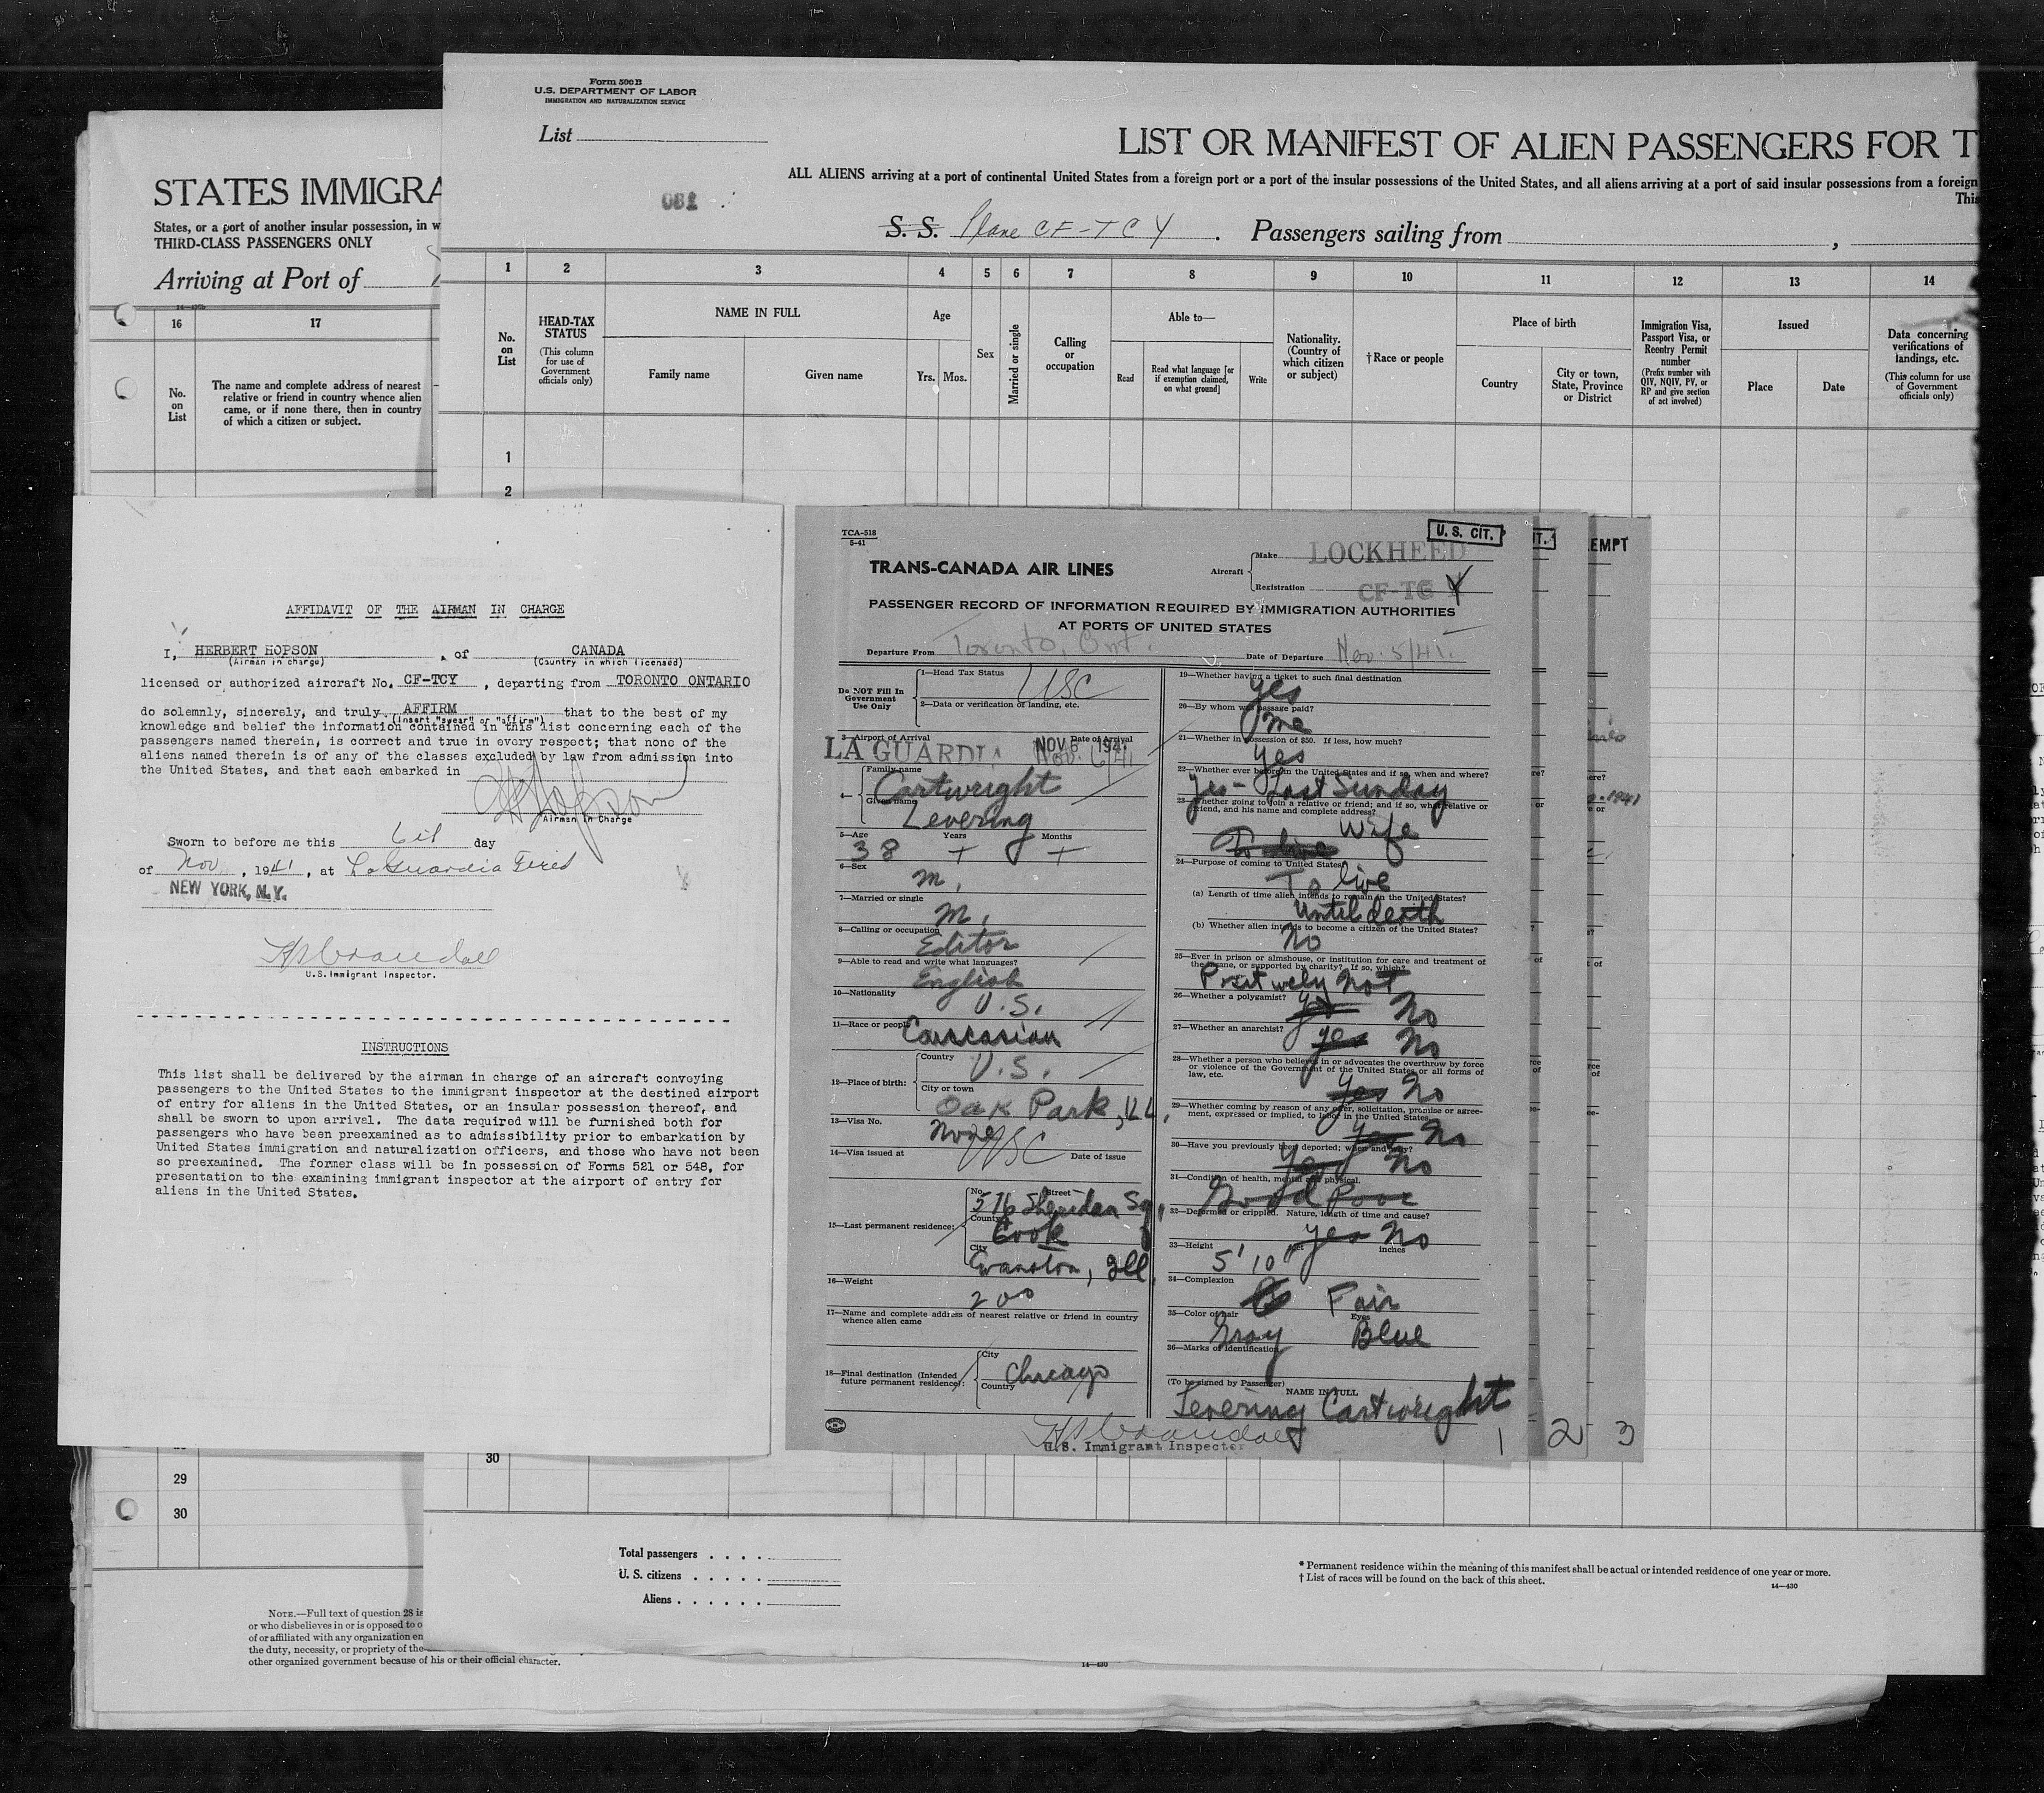 Form 500 B
U.S. DEPARTMENT OF LABOR
IMMIGRATION AND NATURALIZATION SERVICE
List
LIST OR MANIFEST OF ALIEN PASSENGERS FOR T
ALL ALIENS arriving at a port of continental United States from a foreign port or a port of the insular possessions of the United States, and all aliens arriving at a port of said insular possessions from a foreign
This
S. S. Plane CF-TCY . Passengers sailing from ,
STATES IMMIGRA
States, or a port of another insular possession, in w
THIRD-CLASS PASSENGERS ONLY
Arriving at Port of
16 17
No. on List
The name and complete address of nearest
relative or friend in country whence alien
came, or if none there, then in country
of which a citizen or subject.
1 2 3 4 5 6 7 8 9 10 11 12 13 14
No. on List
HEAD-TAX STATUS
(This column for use of Government officials only)
NAME IN FULL
Family name Given name
Age
Yrs. Mos.
Sex
Married or single
Calling or occupation
Able to—
Read
Read what language [or if exemption claimed, on what ground]
Write
Nationality. (Country of which citizen or subject)
† Race or people
Place of birth
Country
City or town, State, Province or District
Immigration Visa, Passport Visa, or Reentry Permit number
(Prefix number with QIV, NQIV, PV, or RP and give section of act involved)
Issued
Place Date
Data concerning verifications of landings, etc.
(This column for use of Government officials only)
1
2
AFFIDAVIT OF THE AIRMAN IN CHARGE
I, HERBERT HOPSON , of CANADA
(Airman in charge) (Country in which licensed)
licensed or authorized aircraft No. CF-TCY , departing from TORONTO ONTARIO
do solemnly, sincerely, and truly AFFIRM that to the best of my
(Insert "swear" or "affirm")
knowledge and belief the information contained in this list concerning each of the
passengers named therein, is correct and true in every respect; that none of the
aliens named therein is of any of the classes excluded by law from admission into
the United States, and that each embarked in
H Hopson
Airman in Charge
Sworn to before me this 6th day
of Nov , 1941 , at LaGuardia Field
NEW YORK, N.Y.
U.S. Immigrant Inspector.
INSTRUCTIONS
This list shall be delivered by the airman in charge of an aircraft conveying
passengers to the United States to the immigrant inspector at the destined airport
of entry for aliens in the United States, or an insular possession thereof, and
shall be sworn to upon arrival. The data required will be furnished both for
passengers who have been preexamined as to admissibility prior to embarkation by
United States immigration and naturalization officers, and those who have not been
so preexamined. The former class will be in possession of Forms 521 or 548, for
presentation to the examining immigrant inspector at the airport of entry for
aliens in the United States.
TCA-518
5-41
U. S. CIT.
IT.
EMPT
TRANS-CANADA AIR LINES
Aircraft
Make LOCKHEED
Registration CF-TC Y
PASSENGER RECORD OF INFORMATION REQUIRED BY IMMIGRATION AUTHORITIES
AT PORTS OF UNITED STATES
Departure From Toronto, Ont. Date of Departure Nov. 5/41.
Do NOT Fill In Government Use Only
1—Head Tax Status USC
2—Data or verification of landing, etc.
3—Airport of Arrival Date of Arrival
LA GUARDIA NOV 6 194
Nov. 6/41
4— Family name Cartwright
Given name Levering
5—Age Years Months
38 + +
6—Sex
M.
7—Married or single
M.
8—Calling or occupation
Editor
9—Able to read and write what languages?
English
10—Nationality
U.S.
11—Race or people
Caucasian
12—Place of birth:
Country U.S.
City or town
Oak Park, Ill.
13—Visa No.
None USC
14—Visa issued at Date of issue
15—Last permanent residence:
No. Street
516 Sheridan Sq,
County
Cook
City
Evanston, Ill.
16—Weight
200
17—Name and complete address of nearest relative or friend in country
whence alien came
18—Final destination (Intended
future permanent residence):
City Chicago
Country
19—Whether having a ticket to such final destination
yes
20—By whom was passage paid?
Me
21—Whether in possession of $50. If less, how much?
yes
22—Whether ever before in the United States and if so, when and where?
Yes - Last Sunday
23—Whether going to join a relative or friend; and if so, what relative or
friend, and his name and complete address?
Wife
To live
24—Purpose of coming to United States?
To live
(a) Length of time alien intends to remain in the United States?
Until death
(b) Whether alien intends to become a citizen of the United States?
No
25—Ever in prison or almshouse, or institution for care and treatment of
the insane, or supported by charity? If so, which?
Positively Not
26—Whether a polygamist? yes No
27—Whether an anarchist?
yes No
28—Whether a person who believes in or advocates the overthrow by force
or violence of the Government of the United States or all forms of
law, etc.
yes No
29—Whether coming by reason of any offer, solicitation, promise or agree-
ment, expressed or implied, to labor in the United States
yes No
30—Have you previously been deported; when and why?
yes No
31—Condition of health, mental and physical.
Good Poor
32—Deformed or crippled. Nature, length of time and cause?
yes No
33—Height feet inches
5' 10"
34—Complexion
Fair
35—Color of hair Eyes
Gray Blue
36—Marks of identification
(To be signed by Passenger)
NAME IN FULL
Levering Cartwright
U.S. Immigrant Inspector
1 2 3
29
30
30
Total passengers . . . .
U. S. citizens . . . . .
Aliens . . . . . .
* Permanent residence within the meaning of this manifest shall be actual or intended residence of one year or more.
† List of races will be found on the back of this sheet.
14—430
NOTE.—Full text of question 28 is
or who disbelieves in or is opposed to o
of or affiliated with any organization en
the duty, necessity, or propriety of the
other organized government because of his or their official character.
14—430